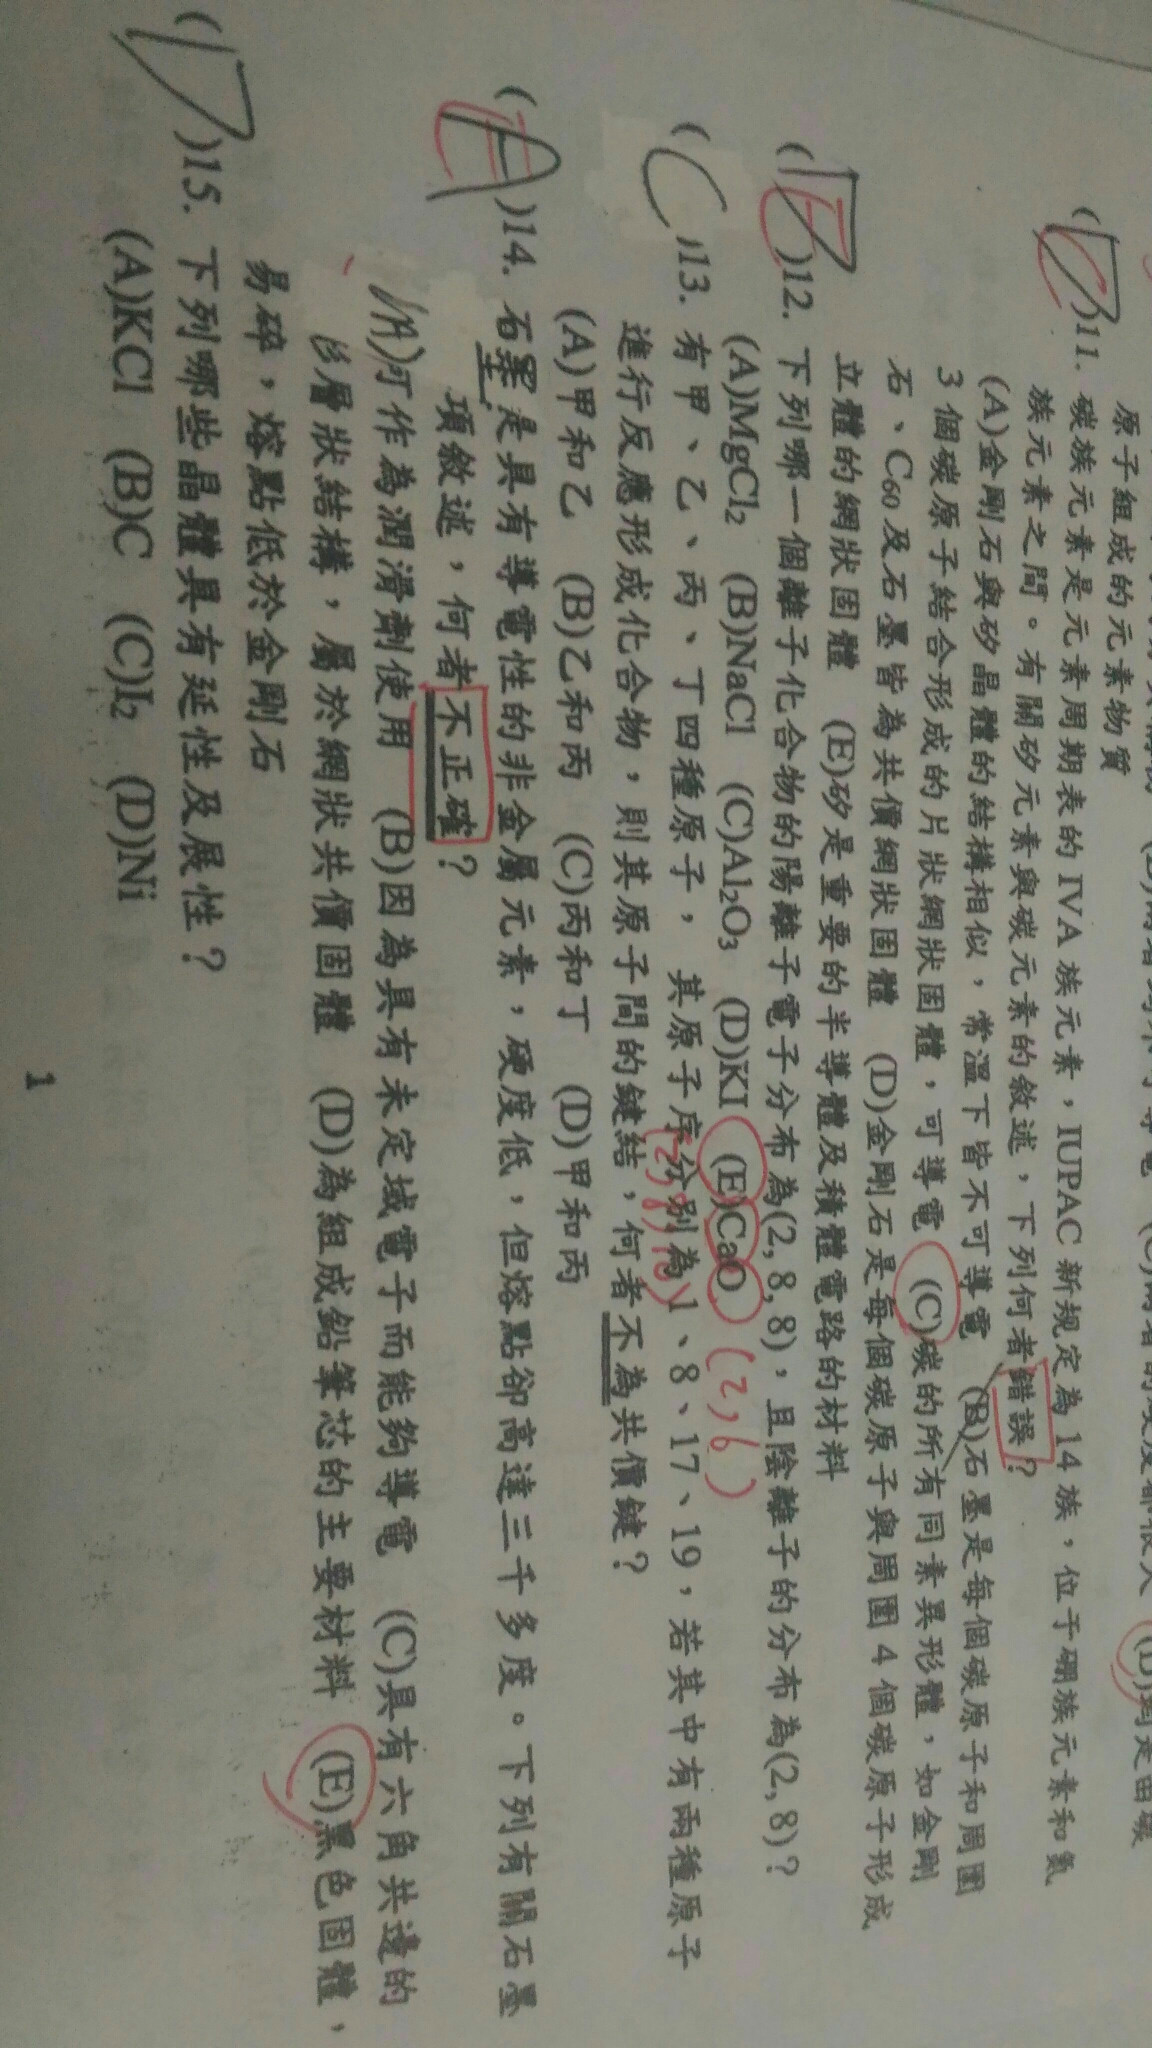 原子組成的元素物質
11. 碳族元素是元素周期表的 IVA 族元素，IUPAC 新規定為 14 族，位于硼族元素和氮
族元素之間。有關矽元素與碳元素的敘述，下列何者錯誤？
(A)金剛石與矽晶體的結構相似，常溫下皆不可導電 (B)石墨是每個碳原子和周圍
3 個碳原子結合形成的片狀網狀固體，可導電 (C)碳的所有同素異形體，如金剛
石、C60 及石墨皆為共價網狀固體 (D)金剛石是每個碳原子與周圍 4 個碳原子形成
立體的網狀固體 (E)矽是重要的半導體及積體電路的材料
12. 下列哪一個離子化合物的陽離子電子分布為(2, 8, 8)，且陰離子的分布為(2, 8)？
(A)MgCl2 (B)NaCl (C)Al2O3 (D)KI (E)CaO (2,6)
(C)13. 有甲、乙、丙、丁四種原子，其原子序分別為 1、8、17、19，若其中有兩種原子
進行反應形成化合物，則其原子間的鍵結，何者不為共價鍵？
(A)甲和乙 (B)乙和丙 (C)丙和丁 (D)甲和丙
14. 石墨是具有導電性的非金屬元素，硬度低，但熔點卻高達三千多度。下列有關石墨
項敘述，何者不正確？
(A)可作為潤滑劑使用 (B)因為具有未定域電子而能夠導電 (C)具有六角共邊的
層狀結構，屬於網狀共價固體 (D)為組成鉛筆芯的主要材料 (E)黑色固體，
易碎，熔點低於金剛石
(D)15. 下列哪些晶體具有延性及展性？
(A)KCl (B)C (C)I2 (D)Ni
1